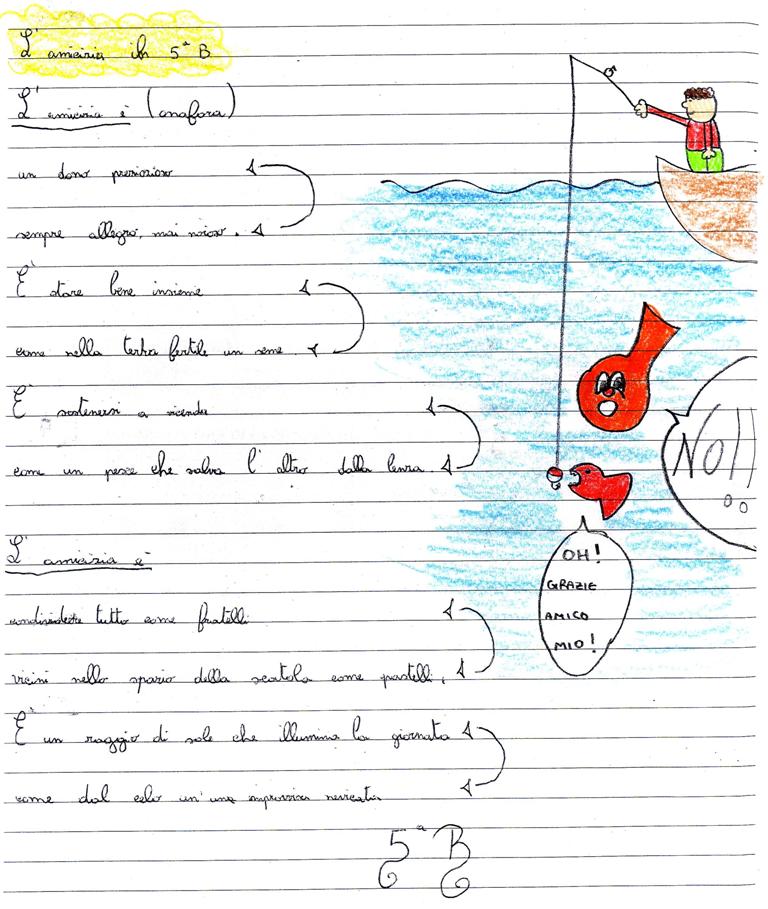 L'amicizia in 5ª B
L'amicizia è (anafora)
un dono prezioso
sempre allegro, mai noioso.
È stare bene insieme
come nella terra fertile un seme.
È sostenersi a vicenda
come un pesce che salva l'altro dalla lenza.
NO!!
OH!
GRAZIE
AMICO
MIO!
L'amicizia è
condividere tutto come fratelli
vicini nello spazio della scatola come pastelli.
È un raggio di sole che illumina la giornata
come dal celo un'una improvvisa nevicata
5ª B